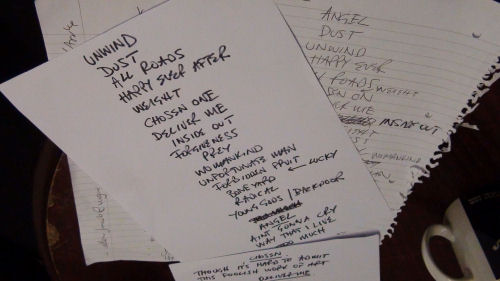 UNWIND
DUST
ALL ROADS
HAPPY EVER AFTER
WEIGHT
CHOSEN ONE
DELIVER ME
INSIDE OUT
FORGIVENESS
PREY
WOMANKIND
UNFORTUNATE MAN
FORBIDDEN FRUIT
BONEYARD ← LUCKY
RADICAL
YOUNG GODS / BACKDOOR
ANGEL
AINT GONNA CRY
WAY THAT I LIVE
MUCH
CHOSEN
THOUGH IT'S HARD TO ADMIT
THIS FOOLISH WORK OF ART
DELIVER ME
ANGEL
DUST
UNWIND
HAPPY EVER
ROADS
WEIGHT
SEN ON
ER ME
INSIDE OUT
WOMANKIND